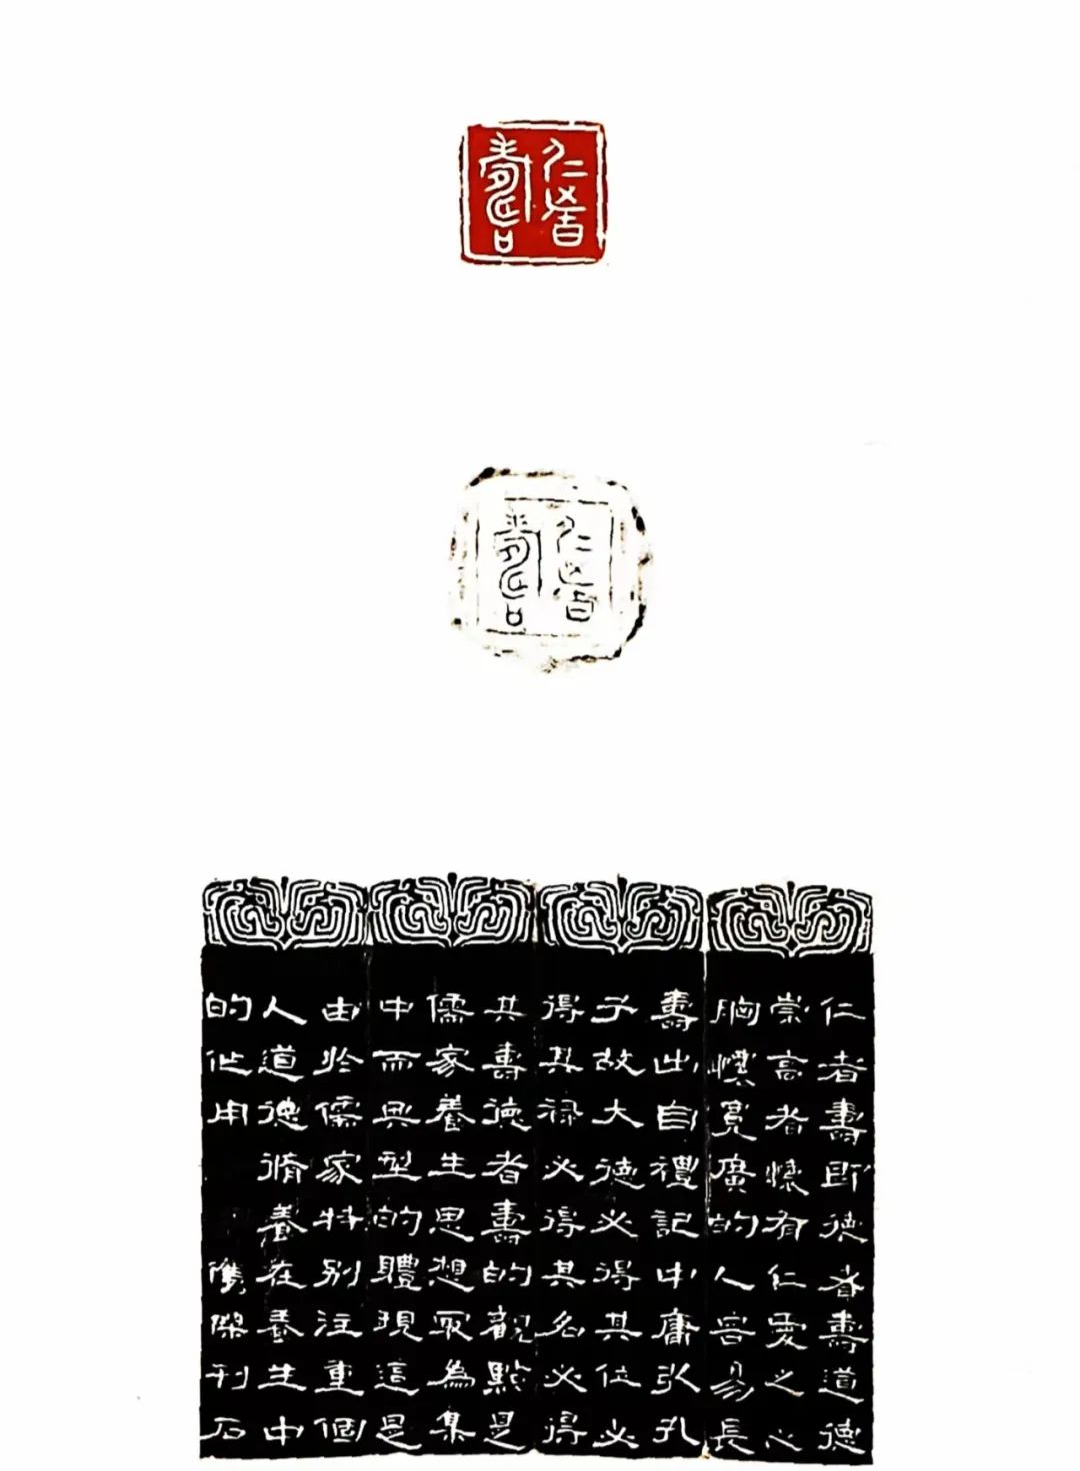 仁者
壽
仁者
壽
仁者壽即德者壽道德
崇高者懷有仁愛之心
胸懷寬廣的人容易長
壽出自禮記中庸引孔
子故大德必得其位必
得其祿必得其名必得
其壽德者壽的觀點是
儒家養生思想最為集
中而典型的體現這是
由於儒家特別注重個
人道德脩養在養生中
的作用 儁傑刊石